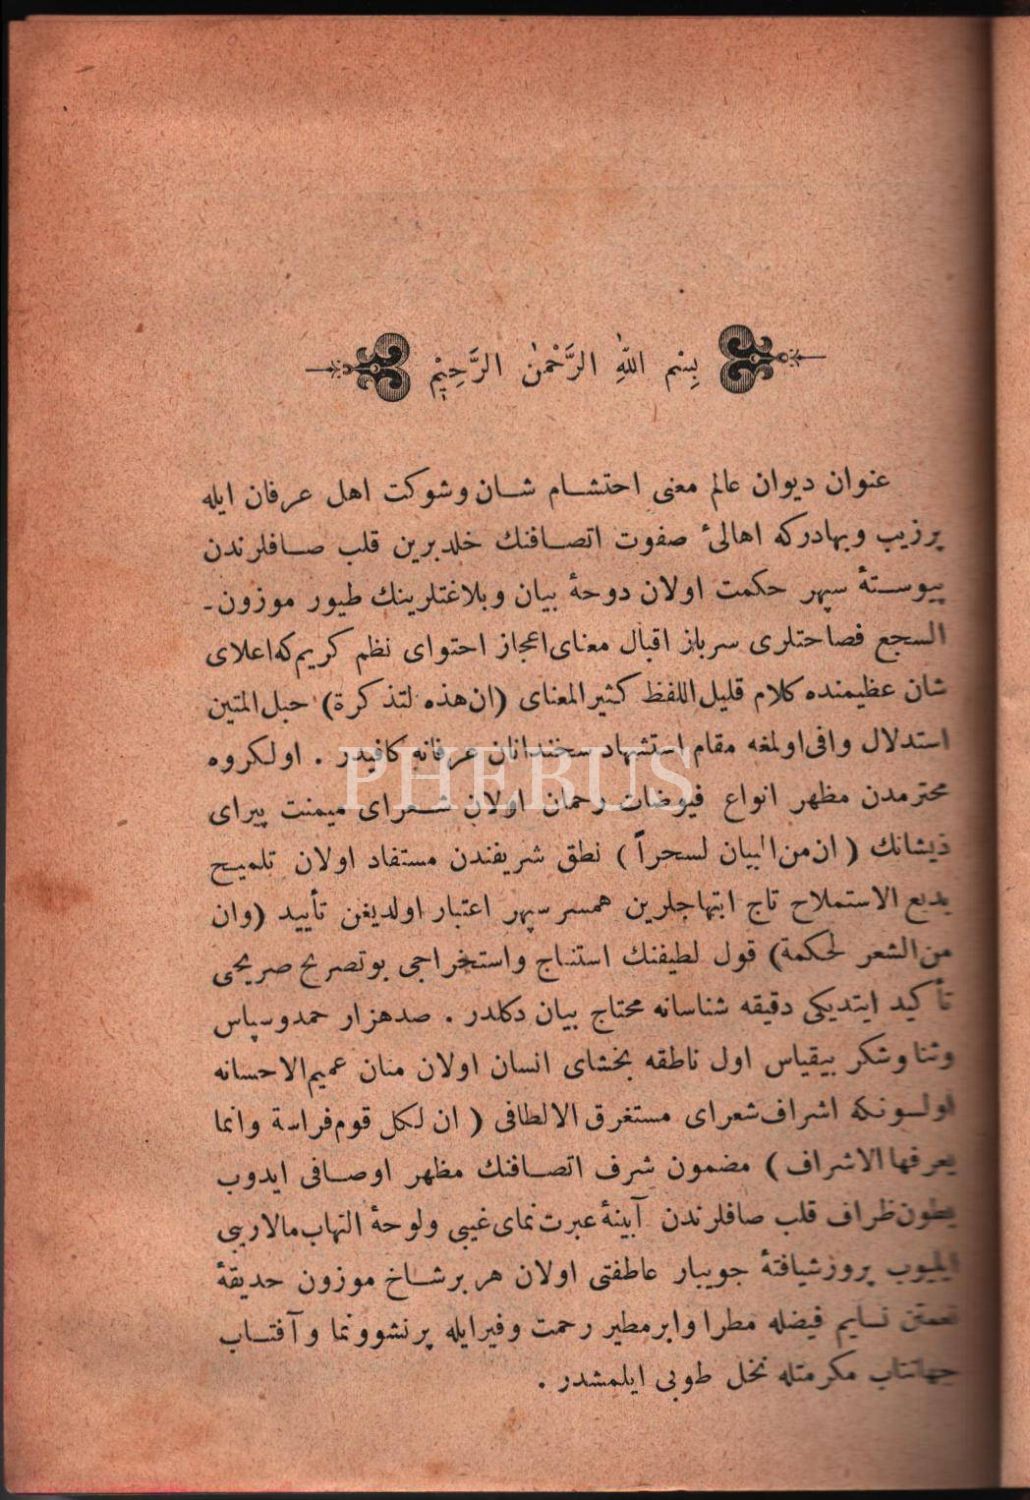 بِسْمِ اللّٰهِ الرَّحْمٰنِ الرَّحِيْمِ
عنوان ديوان عالم معنى احتشام شان وشوكت اهل عرفان ايله
پرزيب وبهادركه اهالئ صفوت اتصافنك خلدبرين قلب صافلرندن
پيوستهٔ سپهر حكمت اولان دوحهٔ بيان وبلاغتلرينك طيور موزون-
السجع فصاحتلرى سرباز اقبال معناى اعجاز احتواى نظم كريم كه اعلاى
شان عظيمنده كلام قليل اللفظ كثير المعناى (ان هذه لتذكرة) حبل المتين
استدلال وافى اولمغه مقام استشهاد سخندانان عرفانه كافيدر . اولكروه
محترمدن مظهر انواع فيوضات رحمان اولان شعراى ميمنت پيراى
ذيشانك ( ان من البيان لسحراً ) نطق شريفندن مستفاد اولان تلميح
بديع الاستملاح تاج ابتهاجلرين همسر سپهر اعتبار اولديغن تأييد (وان
من الشعر لحكمة) قول لطيفنك استنتاج واستخراجى بوتصريح صريحى
تأكيد ايتديكى دقيقه شناسانه محتاج بيان دكلدر . صدهزار حمدوسپاس
وثنا وشكر بيقياس اول ناطقه بخشاى انسان اولان منان عميم الاحسانه
اولسونكه اشراف شعراى مستغرق الالطافى ( ان لكل قوم فراسة وانما
يعرفها الاشراف ) مضمون شرف اتصافنك مظهر اوصافى ايدوب
بطون ظراف قلب صافلرندن آيينهٔ عبرت نماى غيبى ولوحهٔ التهاب مالاريبى
ايليوب پروزشيافتهٔ جويبار عاطفتى اولان هر برشاخ موزون حديقهٔ
نعمتن نسايم فيضله مطرا وابرمطير رحمت وفيرايله پرنشوونما وآفتاب
جهانتاب مكرمتله نخل طوبى ايلمشدر .
PHEBUS